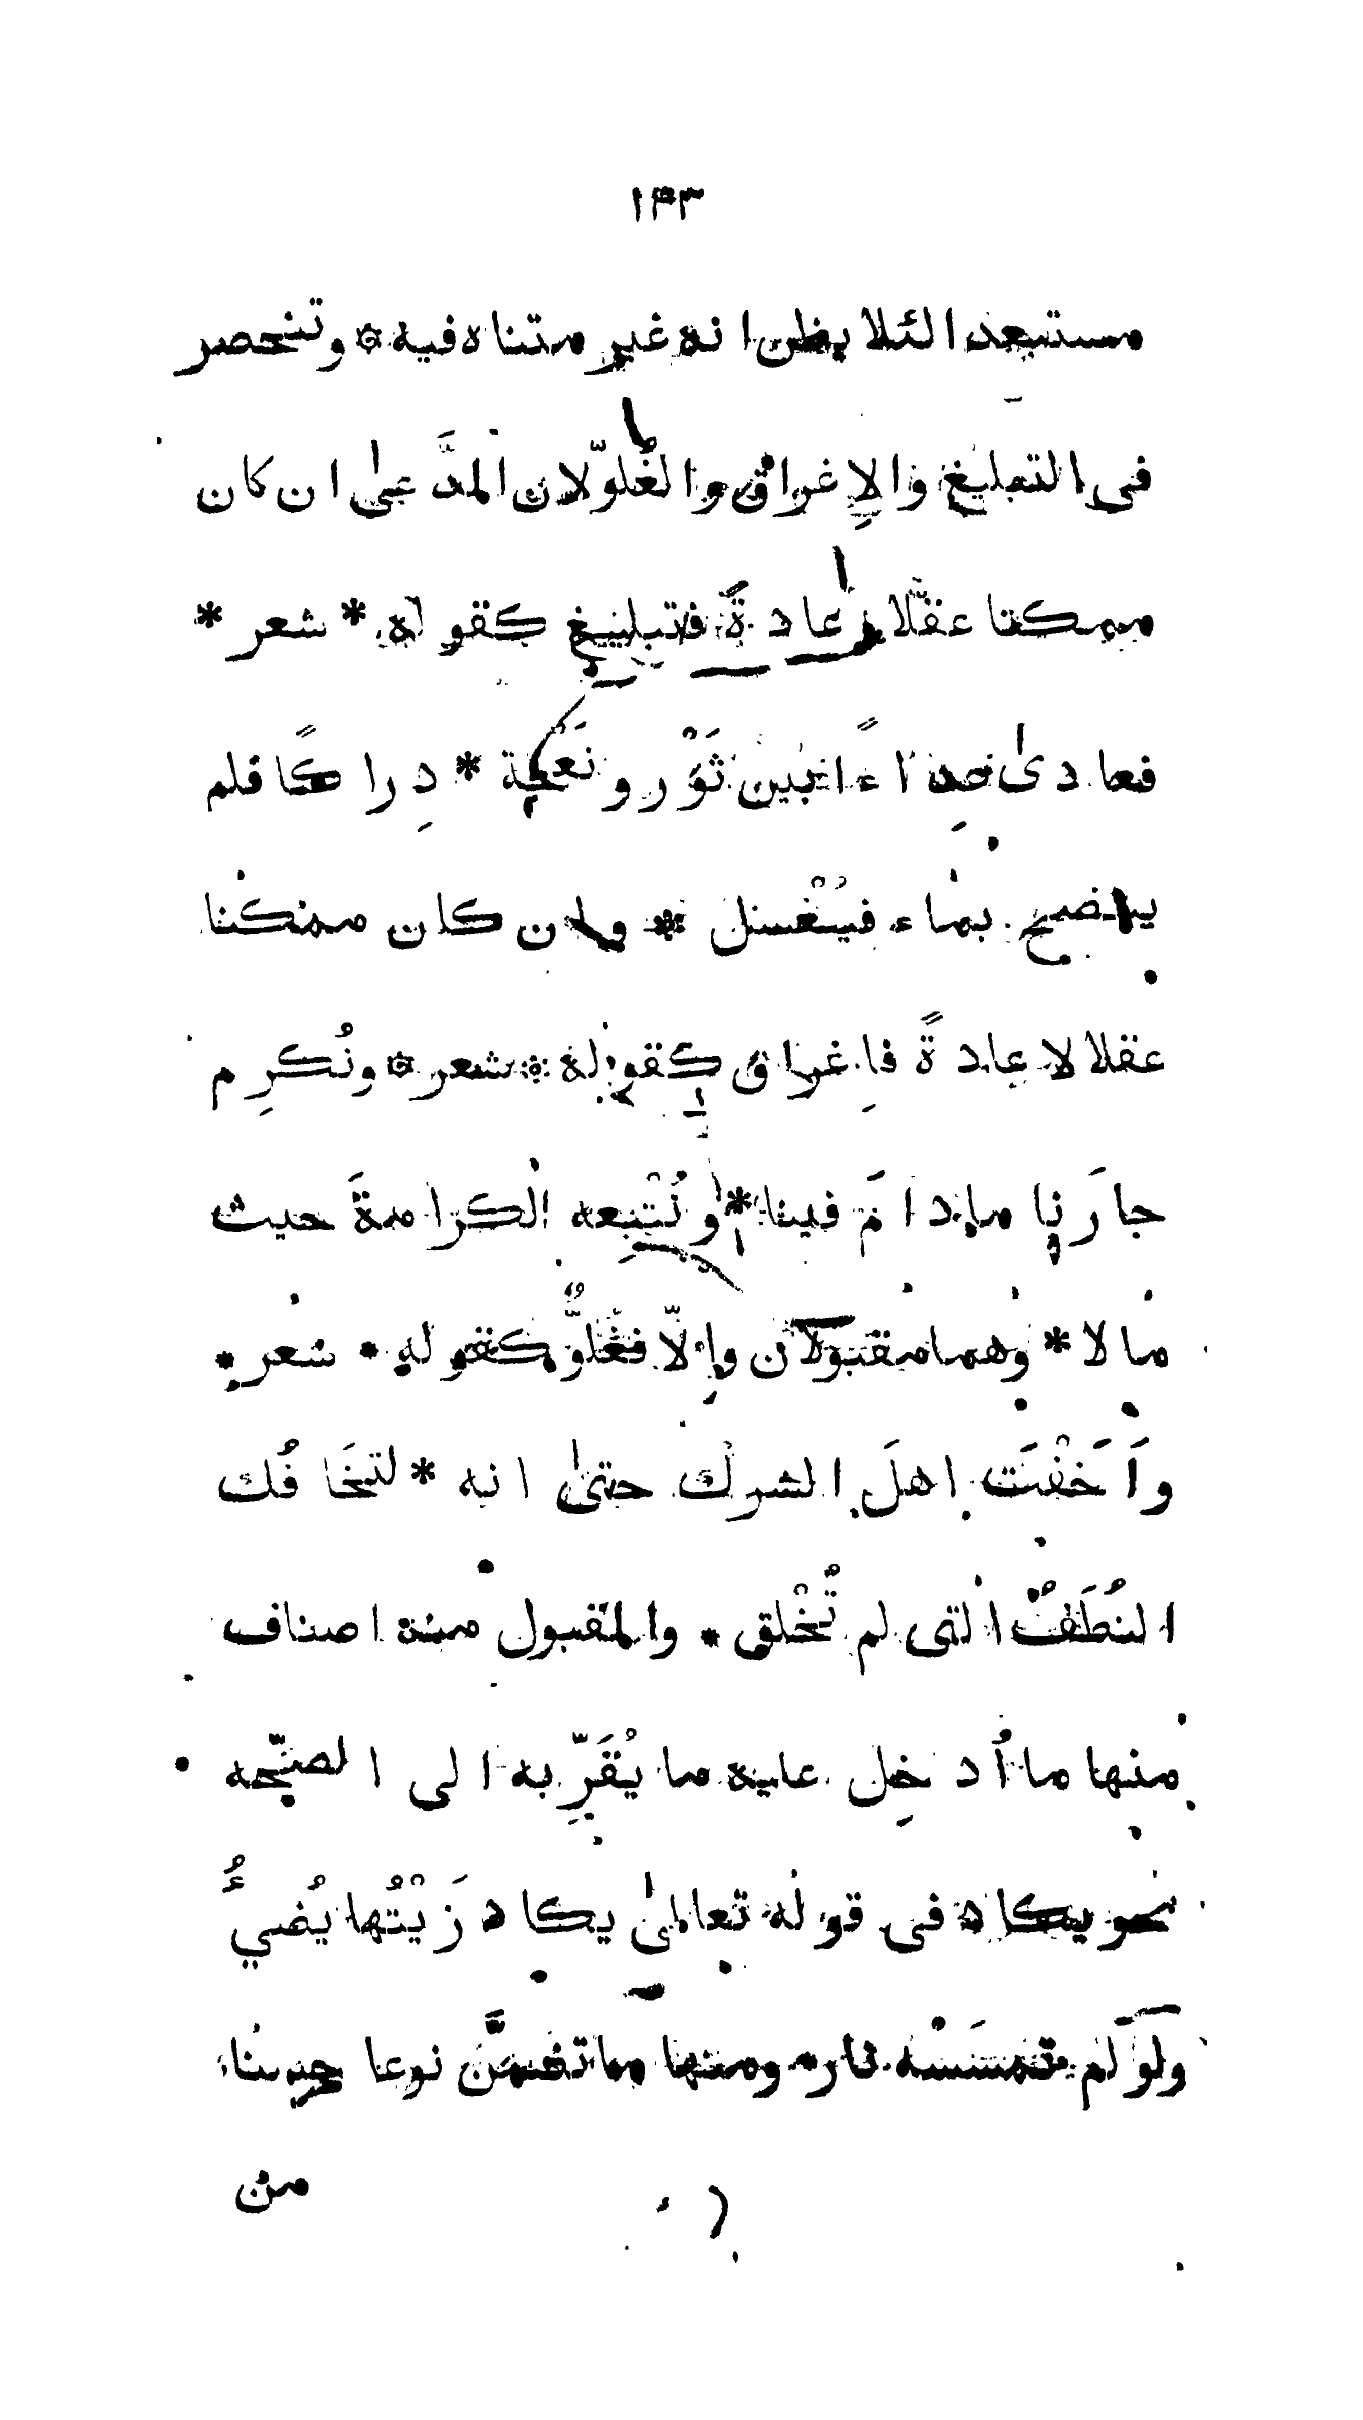 ١٤٣
مستبعدا لئلا يظن انه غير متناه فيه * وتنحصر
فى التبليغ والاِغراق والغُلوّ لان المدَّعىٰ ان كان
ممكنا عقلًا وعادةً فتبليغ كقوله * شعر *
فعادىٰ عِدَاءً بين ثَوْرٍ ونَعْجَةٍ * دِراكًا فلم
ينضح بماء فيُغْسل * وان كان ممكنا
عقلا لا عادةً فاِغراق كقوله * شعر * ونُكرِم
جارَنا مادامَ فينا * ونُتْبِعه الكرامةَ حيث
مالا * وهما مقبولان واِلّا فغُلُوٌّ كقوله * شعر *
وَاَخَفْتَ اهلَ الشرك حتىٰ انه * لتخَافُك
النُطَفُ التى لم تُخْلق * والمقبول منه اصناف
منها ما اُدخِل عليه ما يُقَرِّبه الى الصحّه
نحو يكاد فى قوله تعالىٰ يكاد زَيْتُها يُضيءُ
ولو لم تمسَسْه نار * ومنها ما تضمَّن نوعا حسنا
من